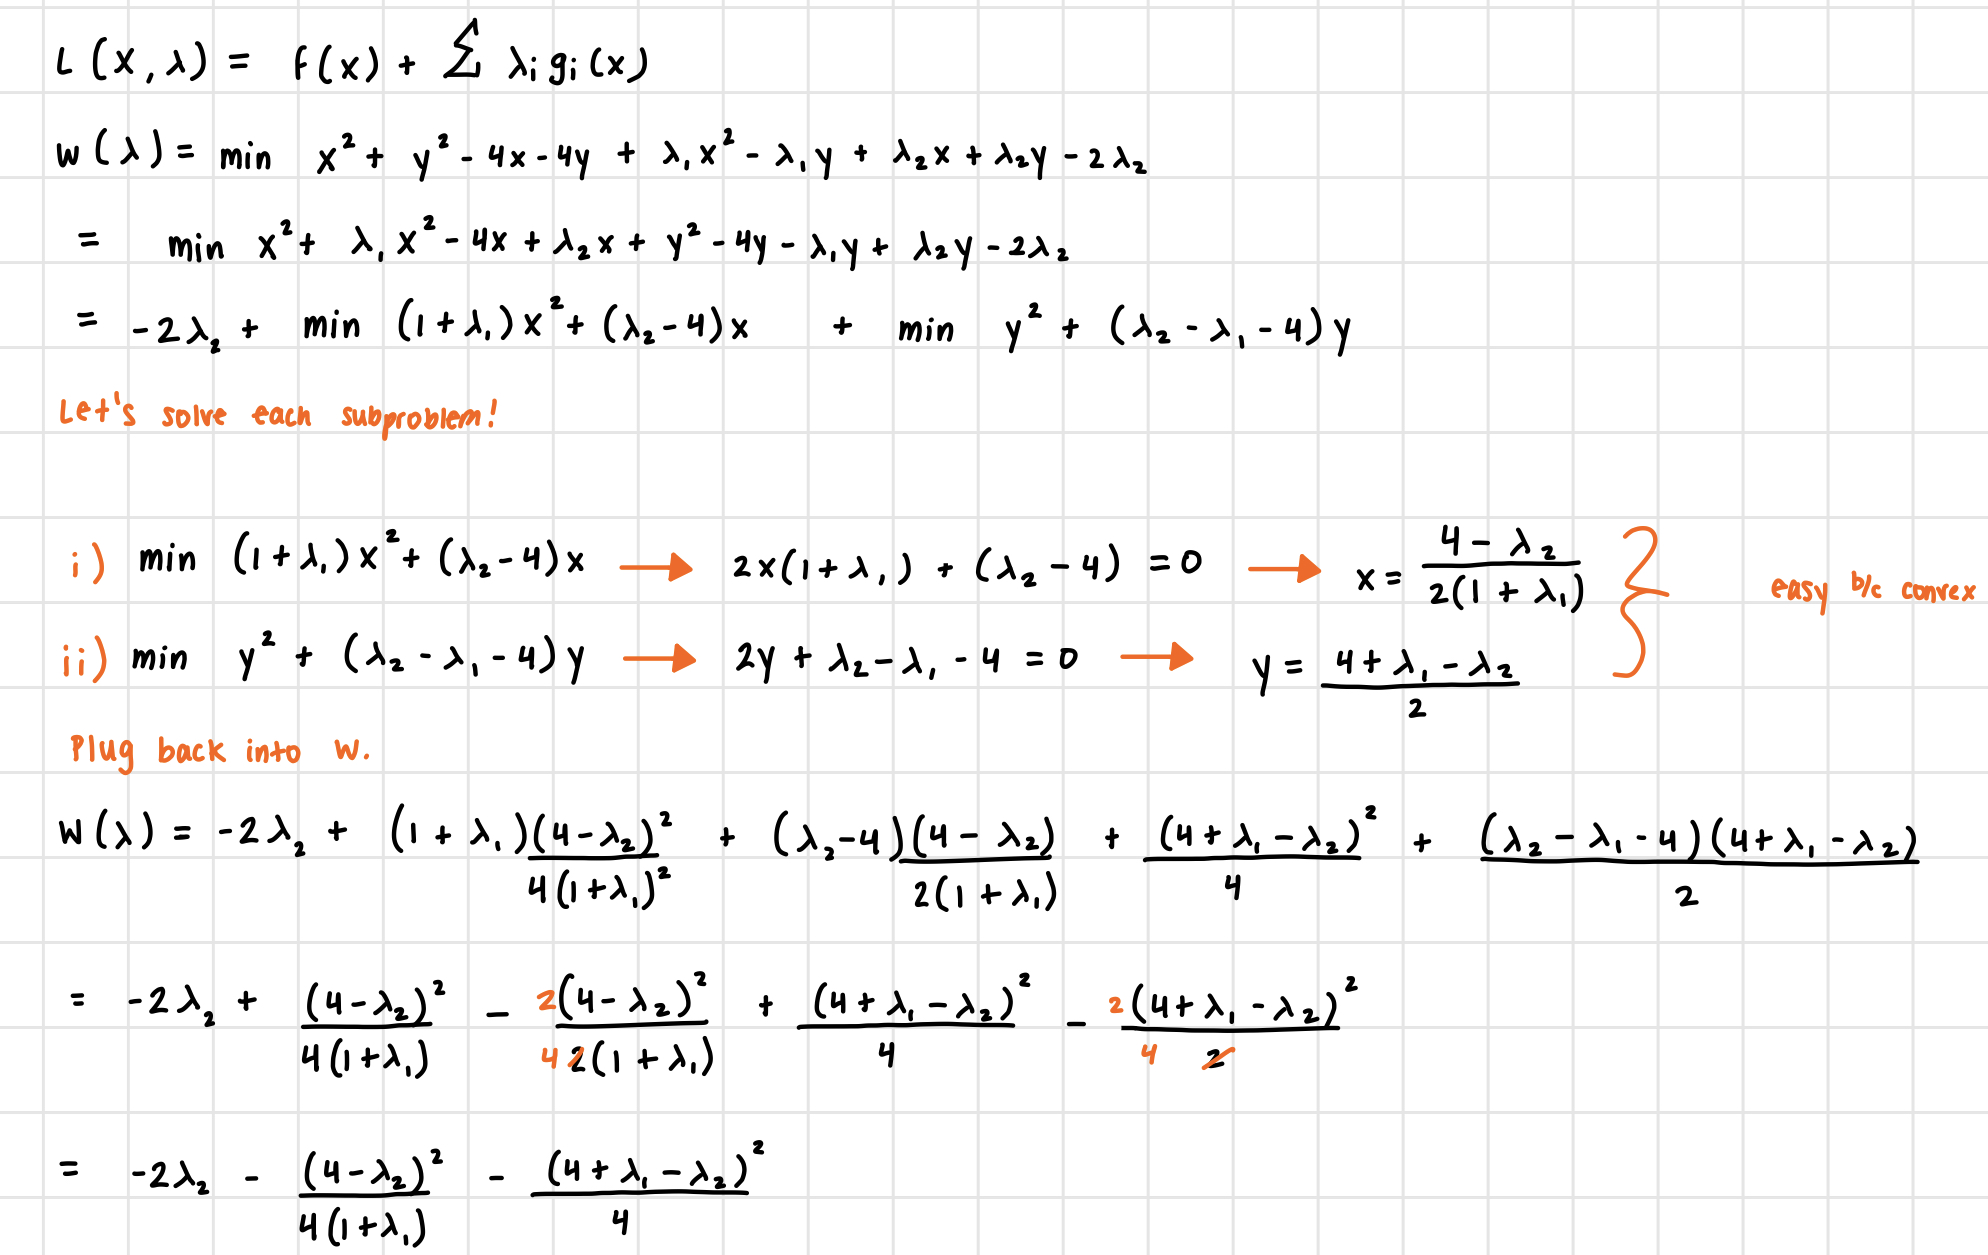 L(x,λ) = f(x) + Σ λᵢgᵢ(x)
w(λ) = min x² + y² - 4x - 4y + λ₁x² - λ₁y + λ₂x + λ₂y - 2λ₂
= min x² + λ₁x² - 4x + λ₂x + y² - 4y - λ₁y + λ₂y - 2λ₂
= -2λ₂ + min (1+λ₁)x² + (λ₂-4)x + min y² + (λ₂ - λ₁ - 4)y
Let's solve each subproblem!
i) min (1+λ₁)x² + (λ₂-4)x → 2x(1+λ₁) + (λ₂-4) = 0 → x = (4-λ₂)/2(1+λ₁) } easy b/c convex
ii) min y² + (λ₂-λ₁-4)y → 2y + λ₂-λ₁-4 = 0 → y = (4+λ₁-λ₂)/2
Plug back into w.
w(λ) = -2λ₂ + (1+λ₁)(4-λ₂)²/4(1+λ₁)² + (λ₂-4)(4-λ₂)/2(1+λ₁) + (4+λ₁-λ₂)²/4 + (λ₂-λ₁-4)(4+λ₁-λ₂)/2
= -2λ₂ + (4-λ₂)²/4(1+λ₁) - 2(4-λ₂)²/4 2(1+λ₁) + (4+λ₁-λ₂)²/4 - 2(4+λ₁-λ₂)²/4 2
= -2λ₂ - (4-λ₂)²/4(1+λ₁) - (4+λ₁-λ₂)²/4